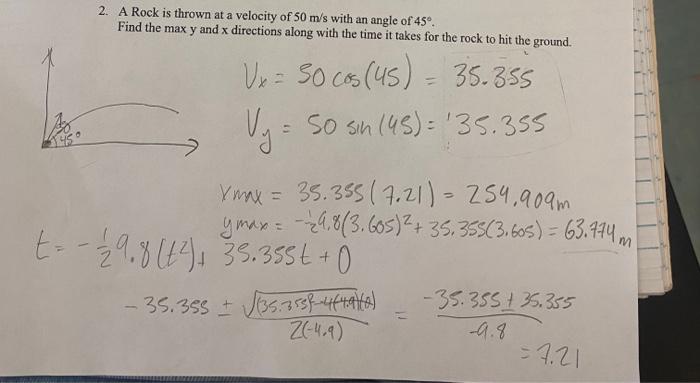 2. A Rock is thrown at a velocity of 50 m/s with an angle of 45°.
Find the max y and x directions along with the time it takes for the rock to hit the ground.
Vx = 50 cos(45) = 35.355
Vy = 50 sin(45) = 35.355
50
45°
Xmax = 35.355(7.21) = 254.909m
ymax = -½9.8(3.605)²+ 35.355(3.605) = 63.774m
t = -½9.8(t²)+ 35.355t + 0
-35.355 ± √(35.355)²-4(-4.9)(0) / 2(-4.9) = -35.355 ± 35.355 / -9.8
= 7.21